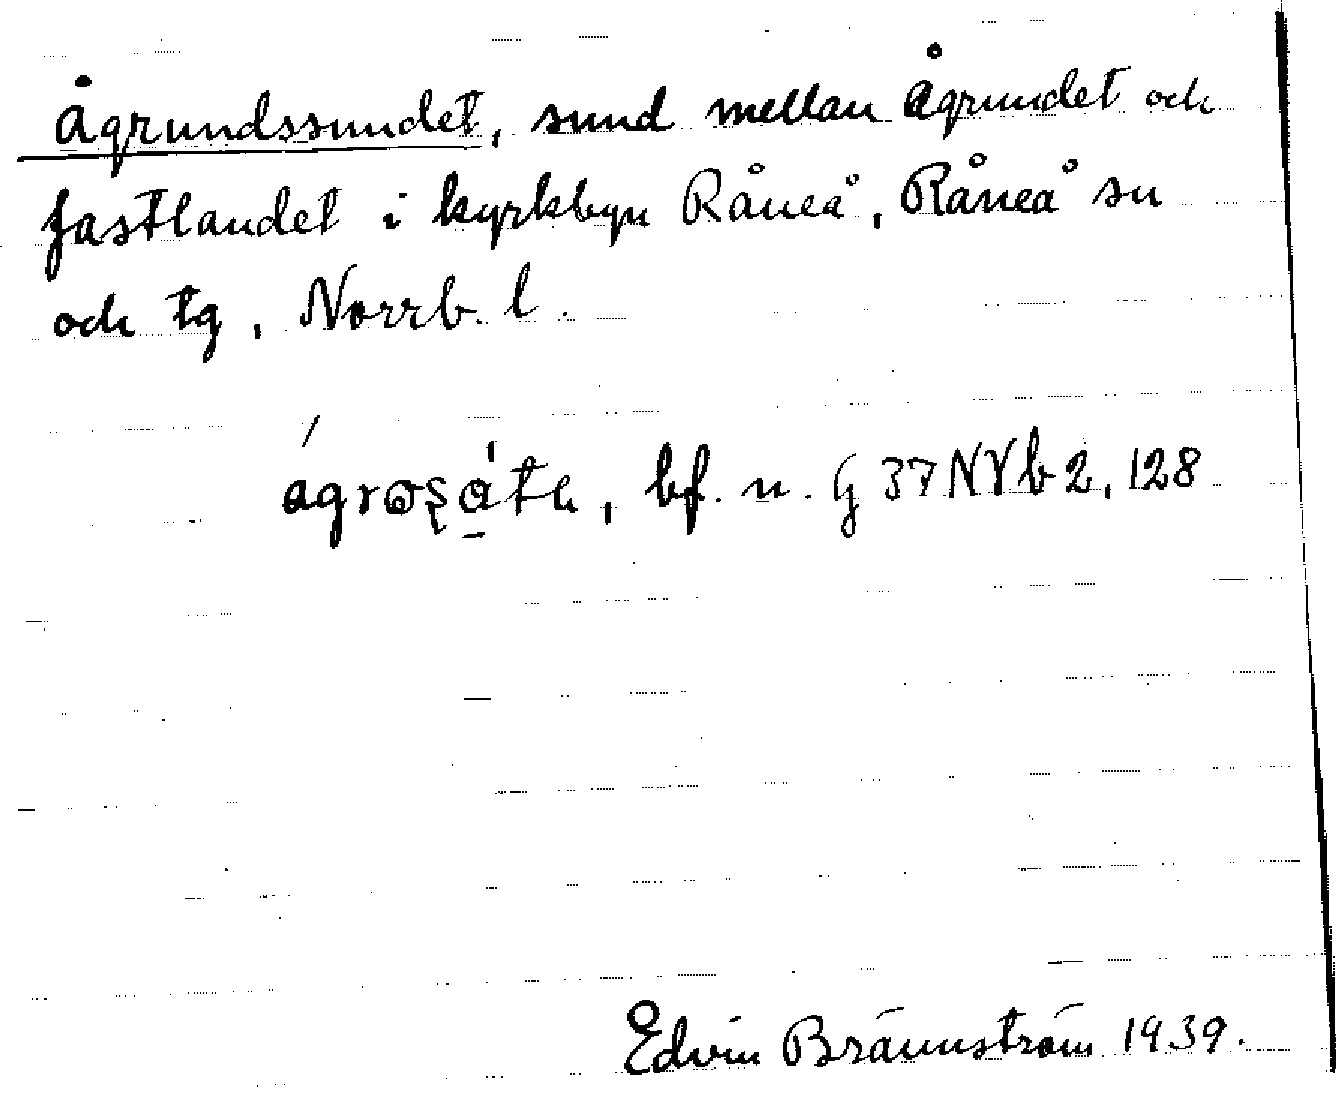 Ågrundssundet, sund mellan Ågrundet och
fastlandet i kyrkbyn Råneå, Råneå sn
och tg, Norrb. l.
bf. n. G 37 NVb 2, 128
Edvin Brännström 1939.